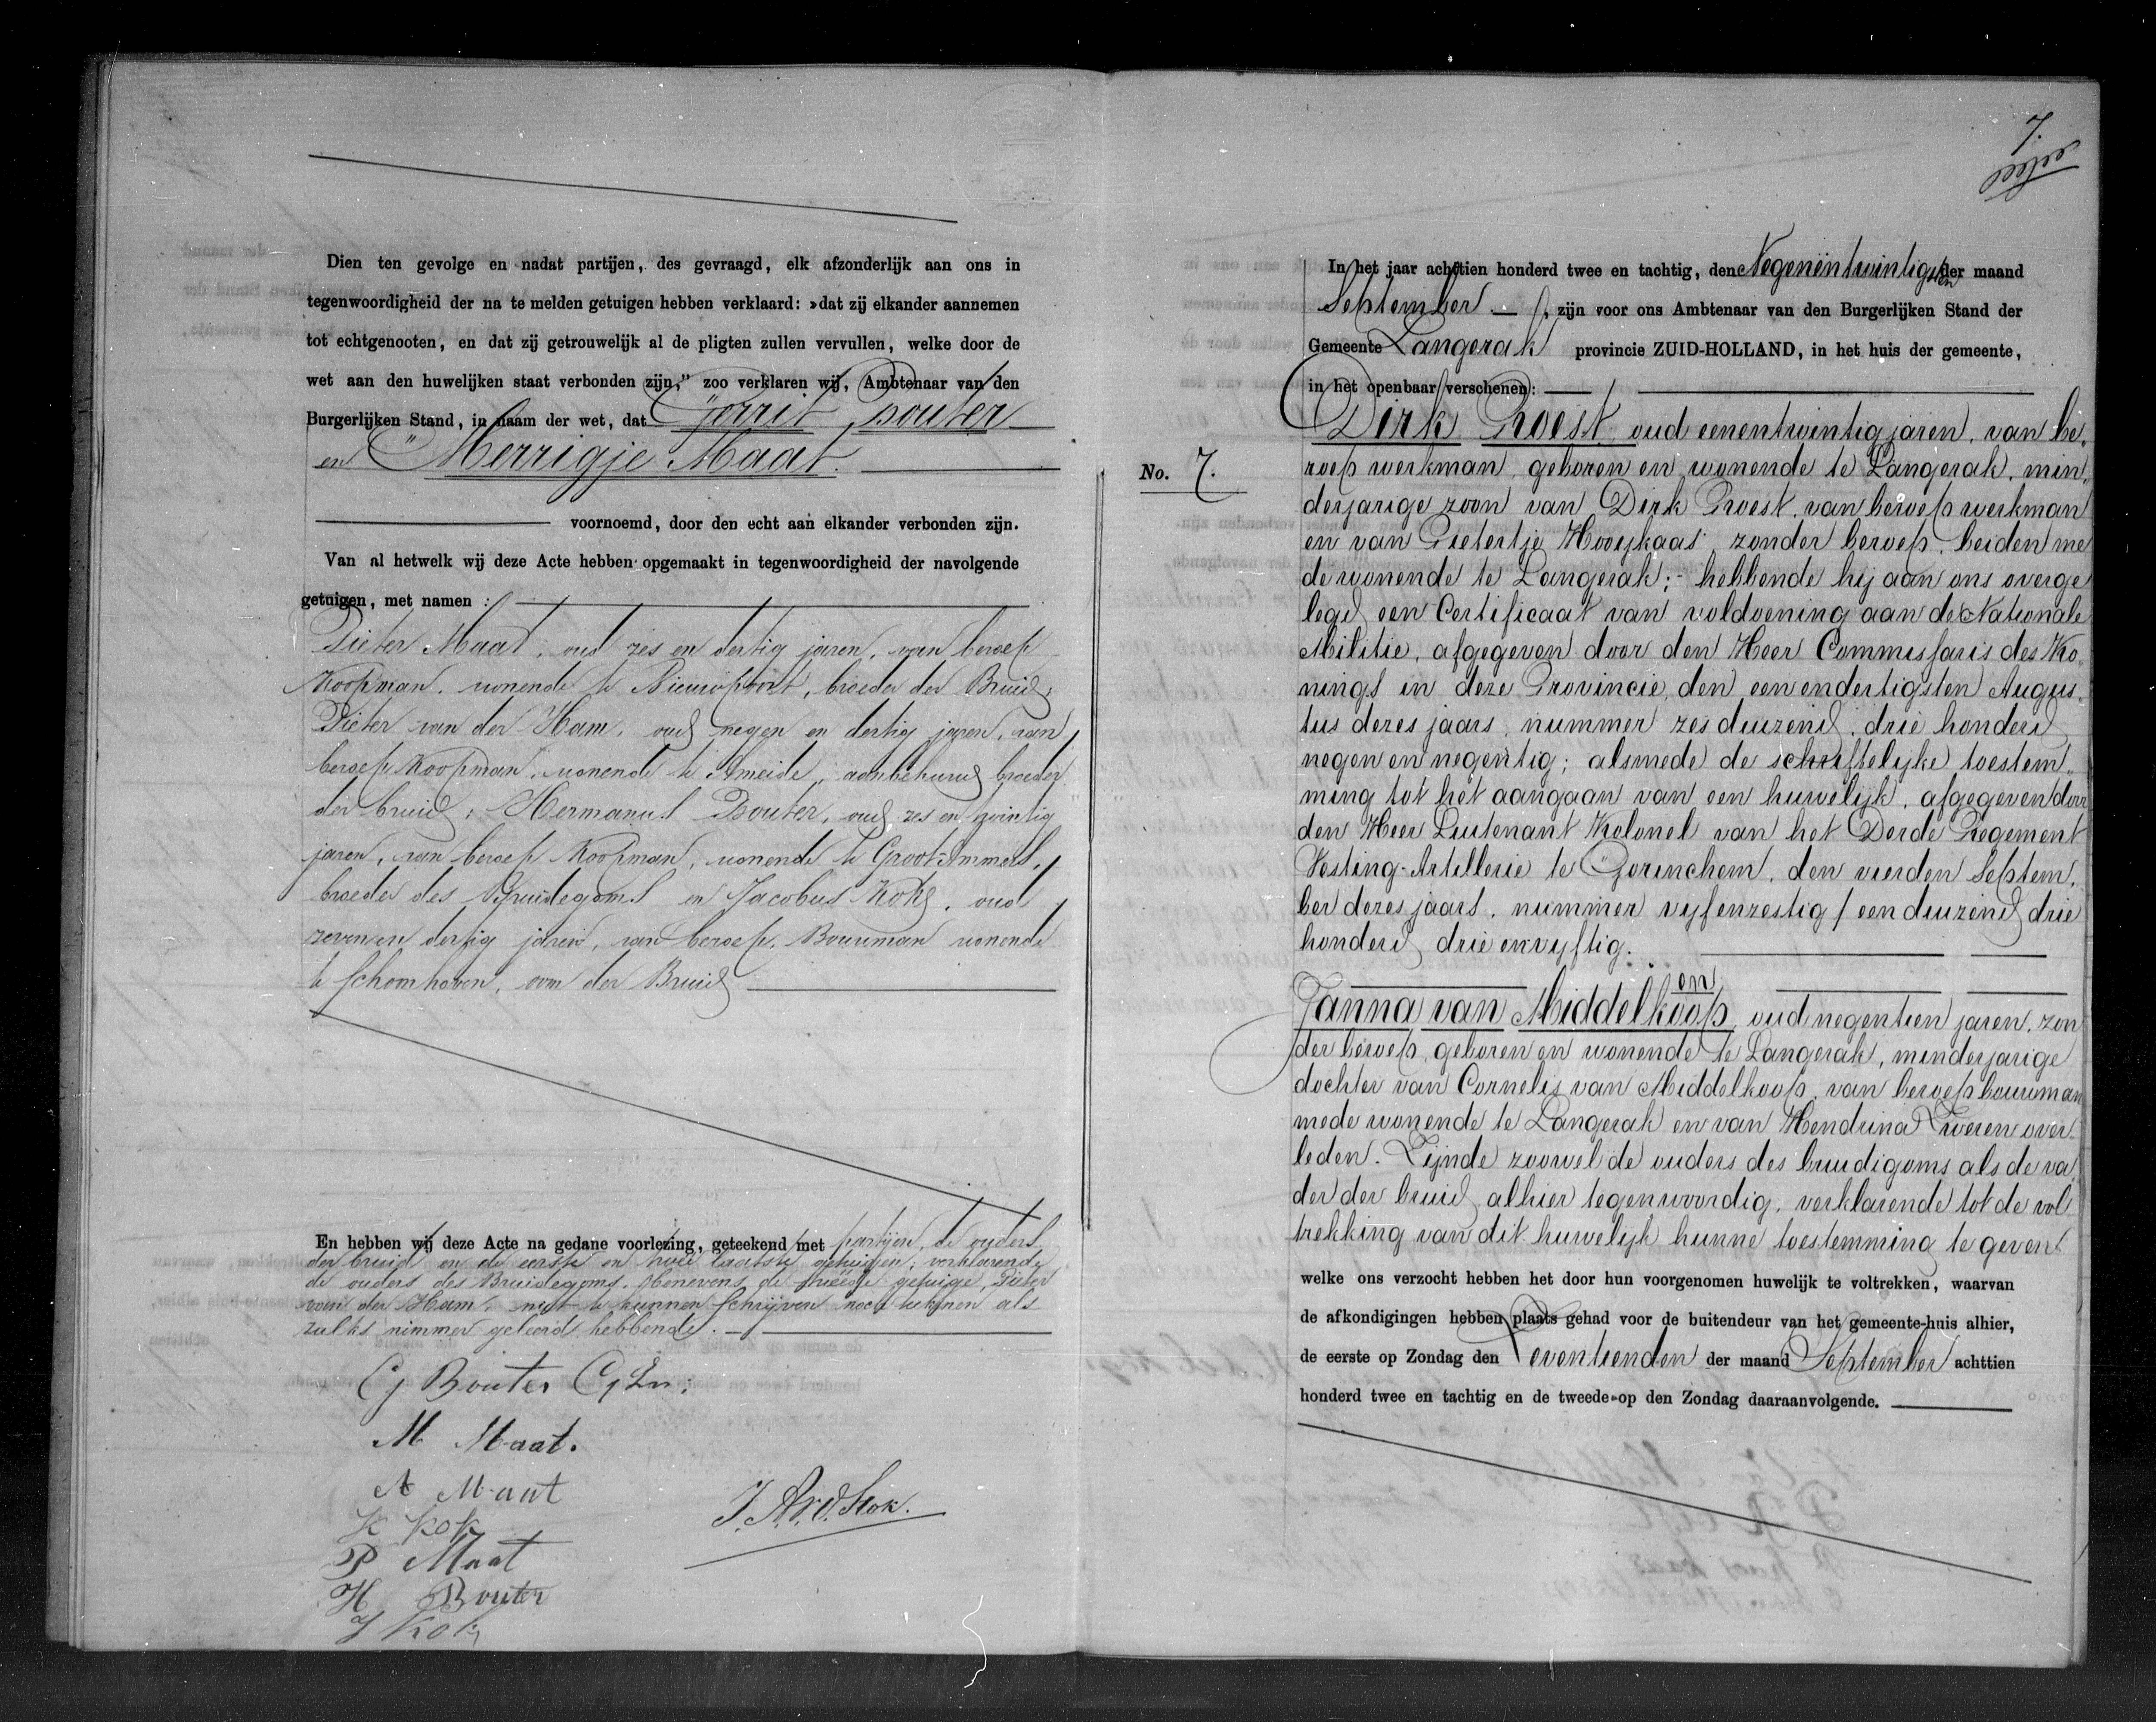 Dien ten gevolge en nadat partijen, des gevraagd, elk afzonderlijk aan ons in
tegenwoordigheid der na te melden getuigen hebben verklaard: »dat zij elkander aannemen
tot echtgenooten, en dat zij getrouwelijk al de pligten zullen vervullen, welke door de
wet aan den huwelijken staat verbonden zijn," zoo verklaren wij, Ambtenaar van den
Burgerlijken Stand, in naam der wet, dat Gerrit Bouter
en Merrigje Maat.
voornoemd, door den echt aan elkander verbonden zijn.
Van al hetwelk wij deze Acte hebben opgemaakt in tegenwoordigheid der navolgende
getuigen, met namen :
Pieter Maat, oud zes en dertig jaren, van beroep
Koopman, wonende te Nieuwpoort, broeder der Bruid;
Pieter van der Ham, oud negen en dertig jaren, van
beroep Koopman, wonende te Ameide, aanbehuwd broeder
der bruid; Hermanus Bouter, oud zes en twintig
jaren, van beroep Koopman, wonende te Groot-Ammers,
broeder des Bruidegoms en Jacobus Kok, oud
zeven en dertig jaren, van beroep Bouwman wonende
te Schoonhoven, oom der Bruid
En hebben wij deze Acte na gedane voorlezing, geteekend met partijen, de ouders
der bruid en de eerste en twee laatste getuigen; verklarende
de ouders des Bruidegoms, benevens de tweede getuige, Pieter
van der Ham, niet te kunnen schrijven noch teekenen als
zulks nimmer geleerd hebbende.
G Bouter Gzn:
M Maat.
A Maat
K Kok
P Maat
H Bouter
J Kok
J. A. v. d. Stok.
7.
No. 7.
In het jaar achttien honderd twee en tachtig, den Negenentwintigsten der maand
September, zijn voor ons Ambtenaar van den Burgerlijken Stand der
Gemeente Langerak provincie ZUID-HOLLAND, in het huis der gemeente,
in het openbaar verschenen:
Dirk Proest oud eenentwintig jaren, van be„
roep werkman, geboren en wonende te Langerak, min„
derjarige zoon van Dirk Proest, van beroep werkman
en van Pietertje Hooijkaas zonder beroep, beiden me
de wonende te Langerak; - hebbende hij aan ons overge
legd een Certificaat van voldoening aan de Nationale
Militie, afgegeven door den Heer Commissaris des Ko„
nings in deze Provincie, den eenendertigsten Augus„
tus dezes jaars, nummer zesduizend, drie honderd
negen en negentig; alsmede de schriftelijke toestem„
ming tot het aangaan van een huwelijk, afgegeven door
den Heer Luitenant Kolonel van het Derde Regement
Vesting-Artillerie te Gorinchem, den vierden Septem„
ber dezes jaars, nummer vijfenzestig / een duizend drie
honderd drie en vijftig.
en
Janna van Middelkoop, oud negentien jaren, zon
der beroep, geboren en wonende te Langerak, minderjarige
dochter van Cornelis van Middelkoop, van beroep bouwman
mede wonende te Langerak en van Hendrina Zweren over„
leden. Zijnde zoowel de ouders des bruidigoms als de va„
der der bruid, alhier tegenwoordig, verklarende tot de vol„
trekking van dit huwelijk hunne toestemming te geven
welke ons verzocht hebben het door hun voorgenomen huwelijk te voltrekken, waarvan
de afkondigingen hebben plaats gehad voor de buitendeur van het gemeente-huis alhier,
de eerste op Zondag den Zeventienden der maand September achttien
honderd twee en tachtig en de tweede op den Zondag daaraanvolgende.